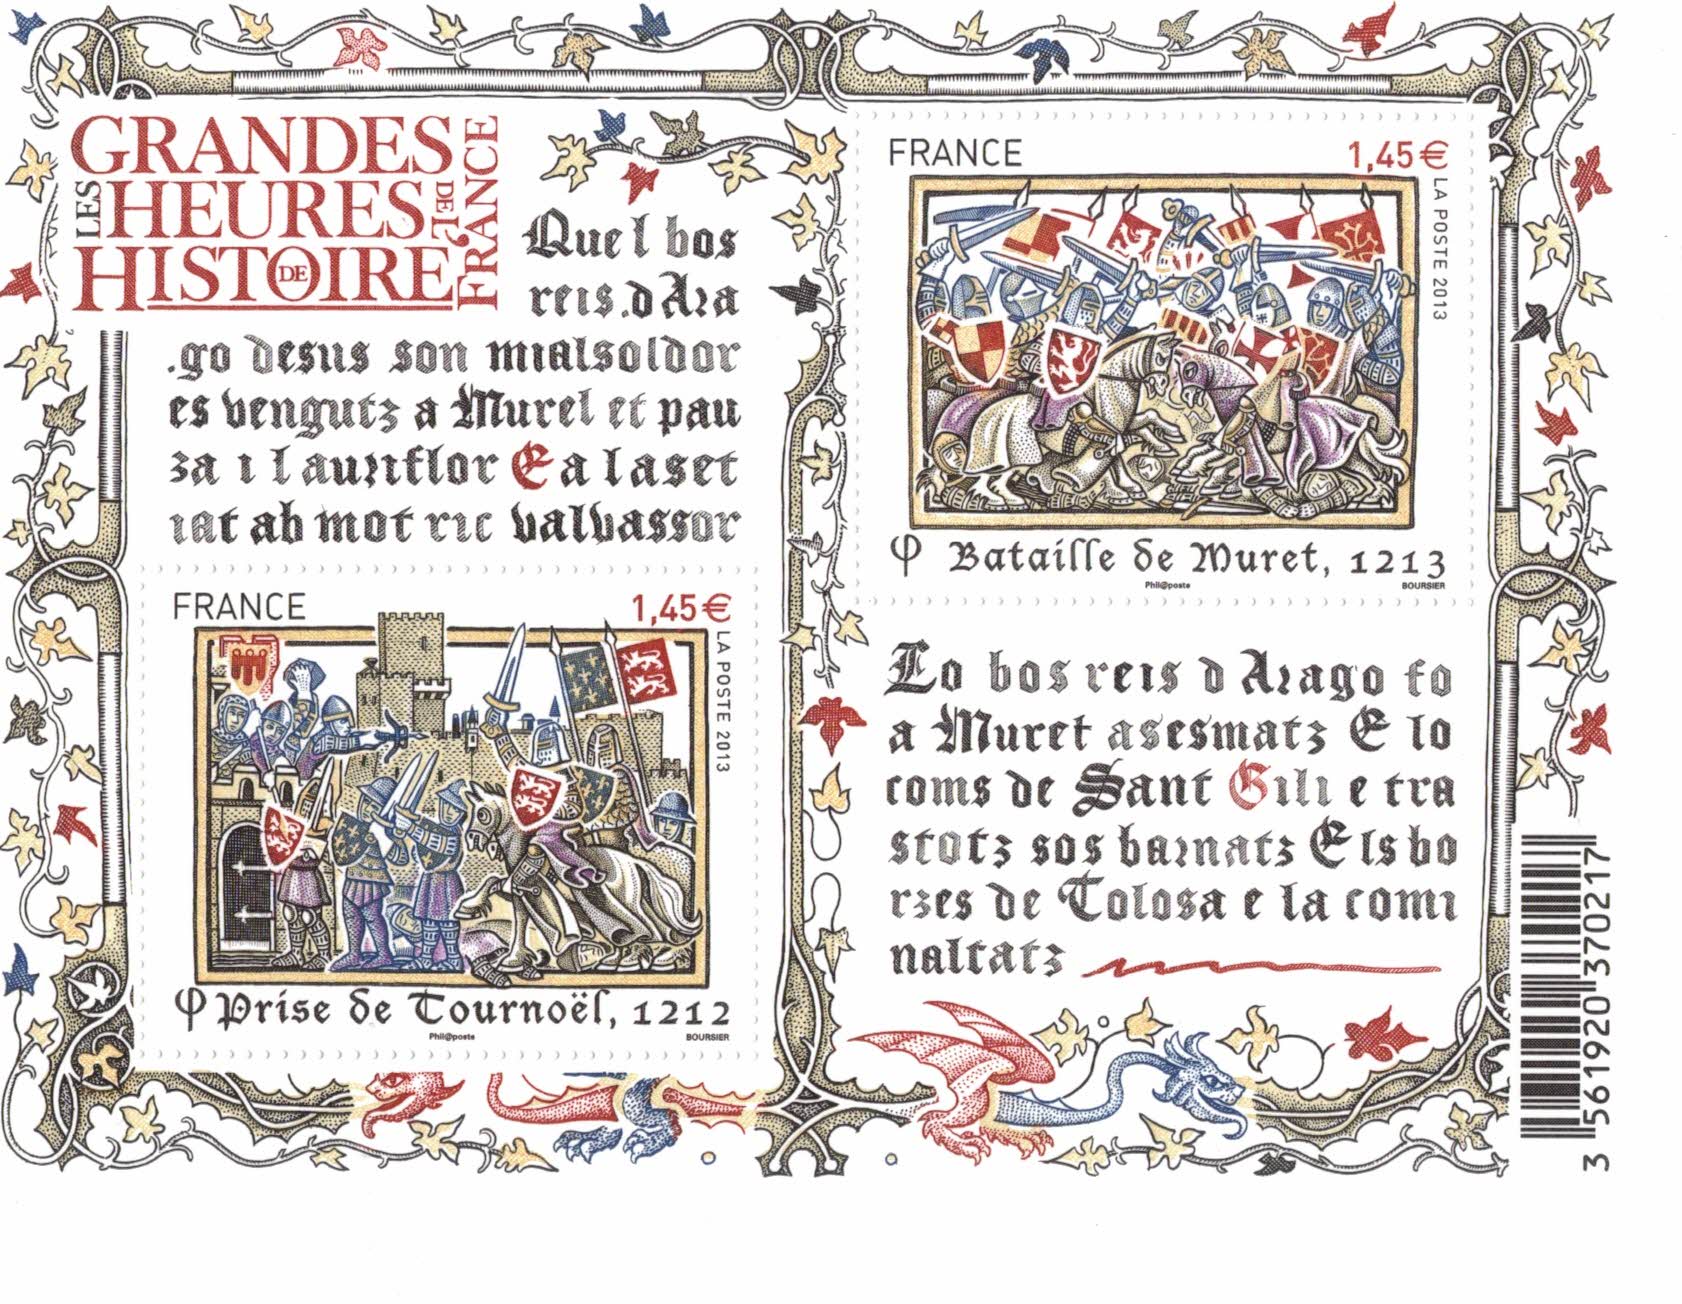 LES GRANDES
HEURES DE L'
HISTOIRE DE
FRANCE
Que l bos
reis.d Ara
.go desus son mialsoldor
es vengutz a Murel et pau
za i l auriflor E a la set
iat ab mot ric valvassor
FRANCE 1,45€
LA POSTE 2013
φ Prise de Tournoël, 1212
Phil@poste BOURSIER
FRANCE 1,45€
LA POSTE 2013
φ Bataille de Muret, 1213
Phil@poste BOURSIER
Lo bos reis d Arago fo
a Muret asesmatz E lo
coms de Sant Gili e tra
stotz sos barnatz E ls bo
rzes de Tolosa e la comi
naltatz
3 561920 370217